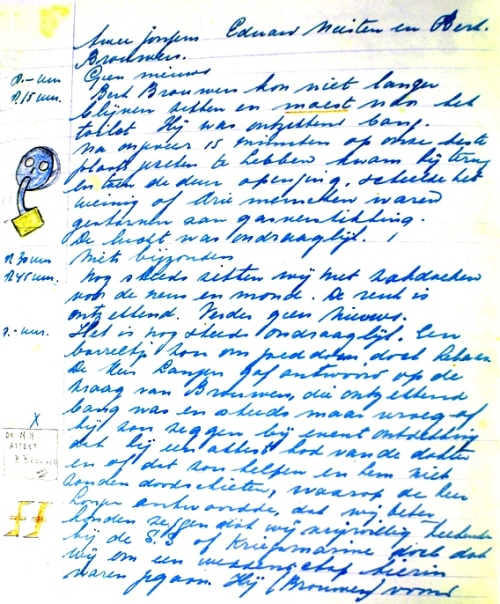 twee jongens Eduard Meisten en Bert.
Brouwers.
Geen nieuws
Bert Brouwers kon niet langer
blijven zitten en moest naar het
toilet Hij was ontzettend bang.
na ongeveer 15 minuten op onze beste
plaats gezeten te hebben kwam hij terug
en toen de deur openging, scheelde het
weinig of drie menschen waren
gestorven aan gasverstikking.
De lucht was ondraaglijk.
Niets bijzonders
Nog steeds zitten wij met zakdoeken
voor de neus en monde. De reuk is
ontzettend. Verder geen nieuws.
7.- uur. Het is nog steeds ondraaglijk. Een
borreltje kon ons goed doen doch helaas
De Heer gaf antwoord op de
vraag van Brouwers, die ontzettend
bang was en steeds maar vroeg of
hij zou zeggen bij event ontdekking
dat hij een attest had van de dokter
en of dat zou helpen en hem niet
zouden doodschieten, waarop de heer
antwoordde, dat wij beter
konden zeggen dat wij vrijwillig
bij de S.S of Kriegsmarine doch dat
wij om een weddenschap hierin
waren gegaan. Hij (Brouwers) voorns
X
Dr. N.N
ATTEST